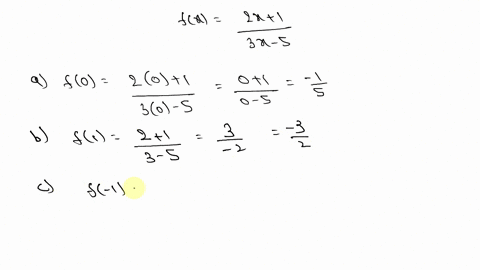 f(x) = (2x+1)/(3x-5)
a) f(0) = (2(0)+1)/(3(0)-5) = (0+1)/(0-5) = -1/5
b) f(1) = (2+1)/(3-5) = 3/-2 = -3/2
c) f(-1)